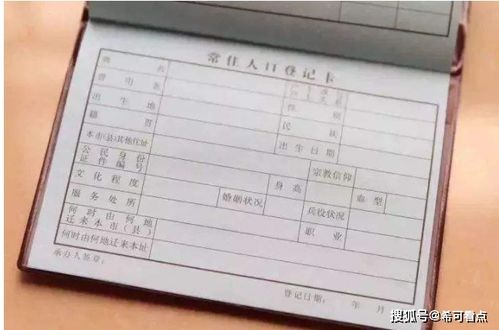 常住人口登记卡
姓 名
曾 用 名 性 别
出 生 地 民 族
籍 贯 出 生 日 期
本市(县)其他住址 宗教信仰
公 民 身 份
证 件 编 号 身 高 血 型
文 化 程 度 婚姻状况 兵役状况
服 务 处 所 职 业
何 时 由 何 地
迁 来 本 市 ( 县 )
何时由何地迁来本址
承办人签章:
登记日期: 年 月
搜狐号@希可看点